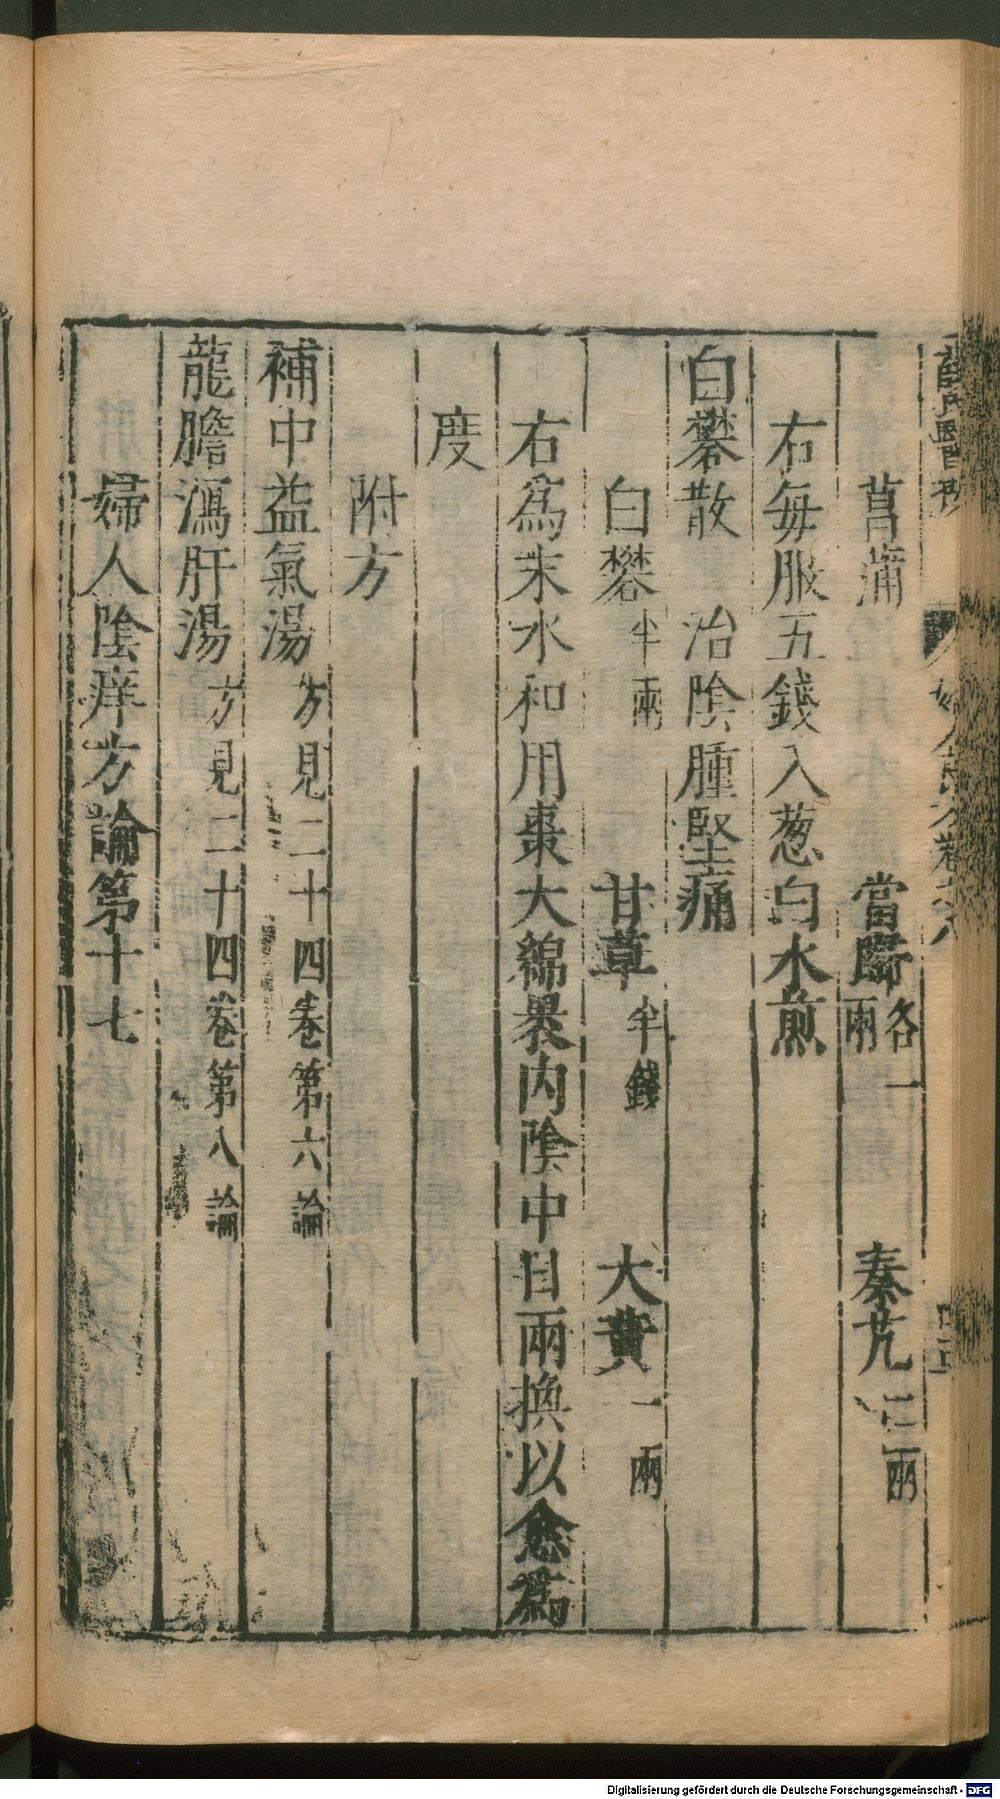 菖蒲　當歸各一兩　秦艽三兩
右每服五錢入葱白水煎
白礬散　治陰腫堅痛
白礬半兩　甘草半錢　大黃一兩
右爲末水和用棗大綿褁內陰中日兩換以愈爲
度
附方
補中益氣湯方見二十四卷第六論
龍膽瀉肝湯方見二十四卷第八論
婦人陰痒方論第十七
Digitalisierung gefördert durch die Deutsche Forschungsgemeinschaft - DFG